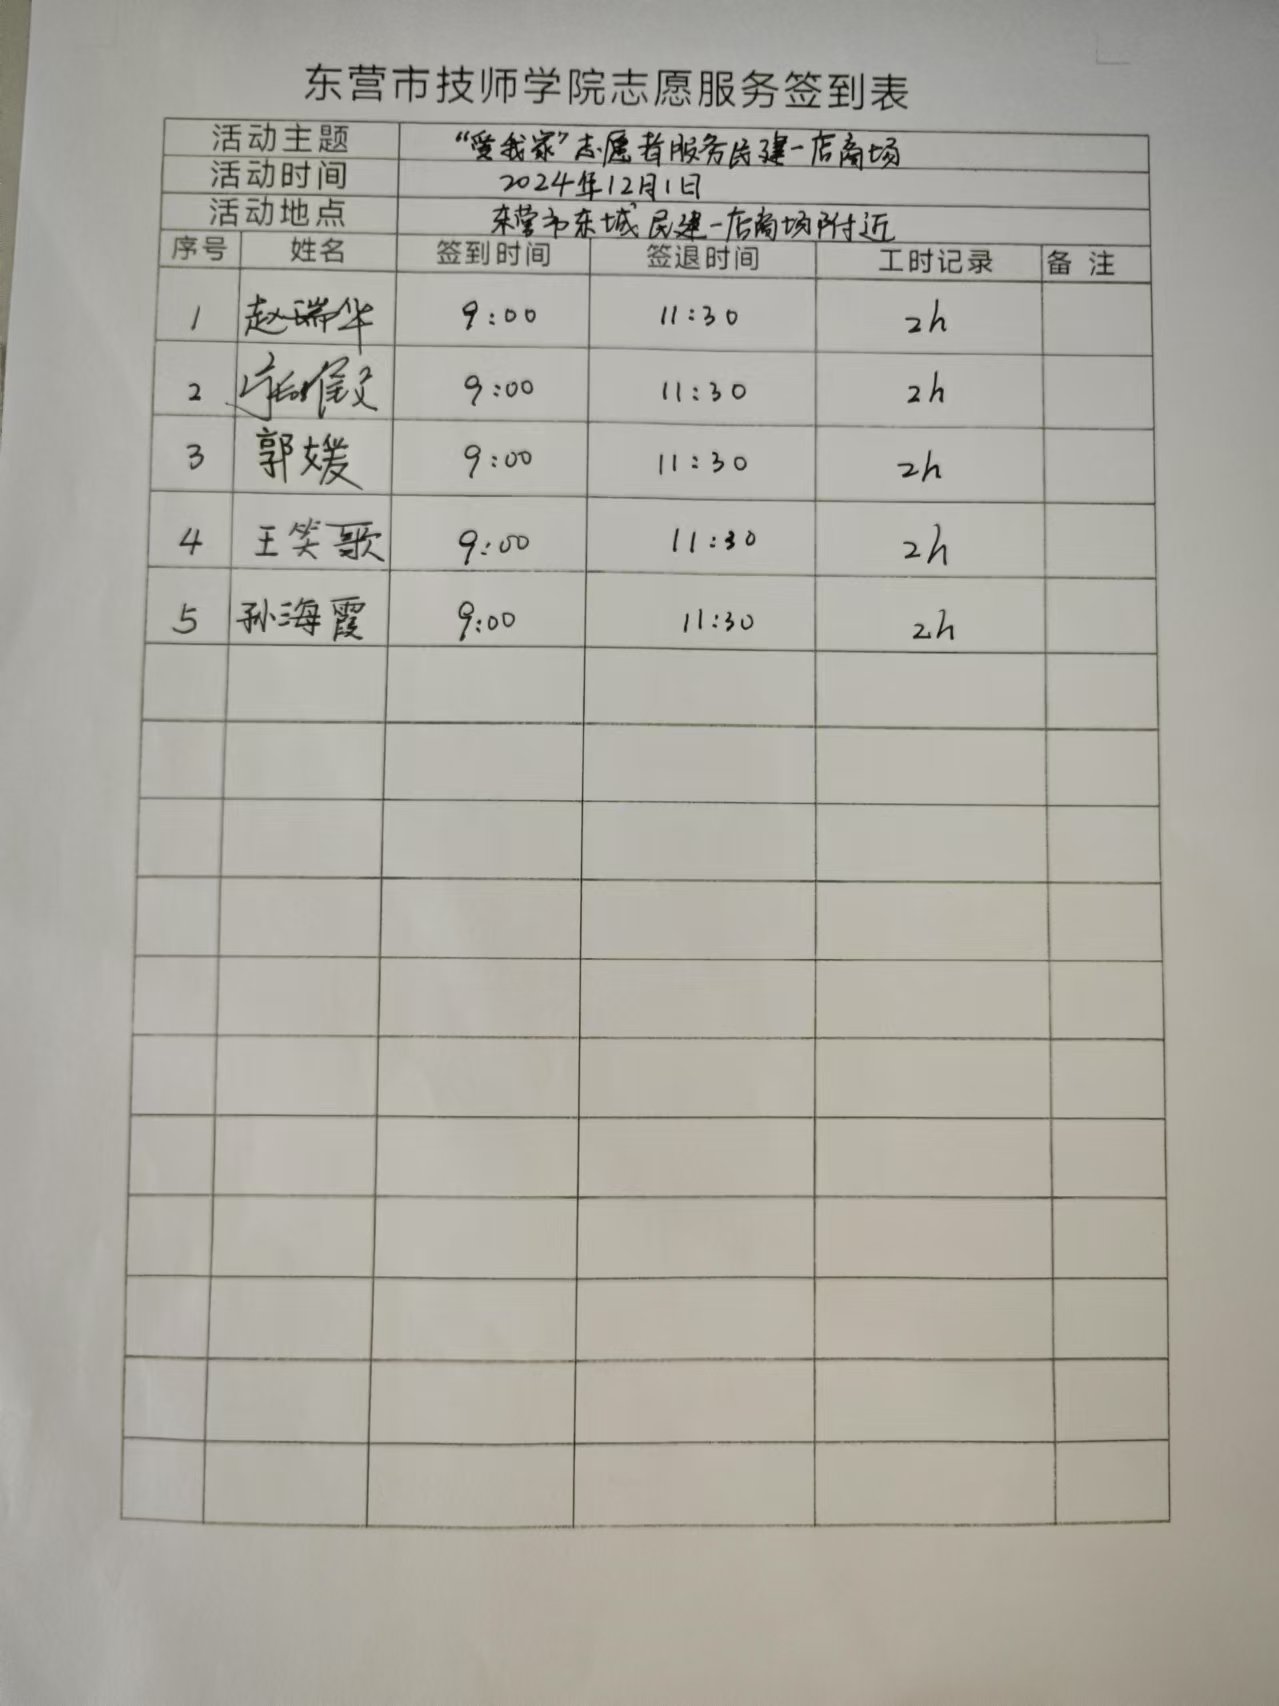 东营市技师学院志愿服务签到表
活动主题 “爱我家”志愿者服务民建一店商场
活动时间 2024年12月1日
活动地点 东营市东城民建一店商场附近
序号 姓名 签到时间 签退时间 工时记录 备 注
1 赵瑞华 9:00 11:30 2h
2 9:00 11:30 2h
3 郭媛 9:00 11:30 2h
4 王笑歌 9:00 11:30 2h
5 孙海霞 9:00 11:30 2h